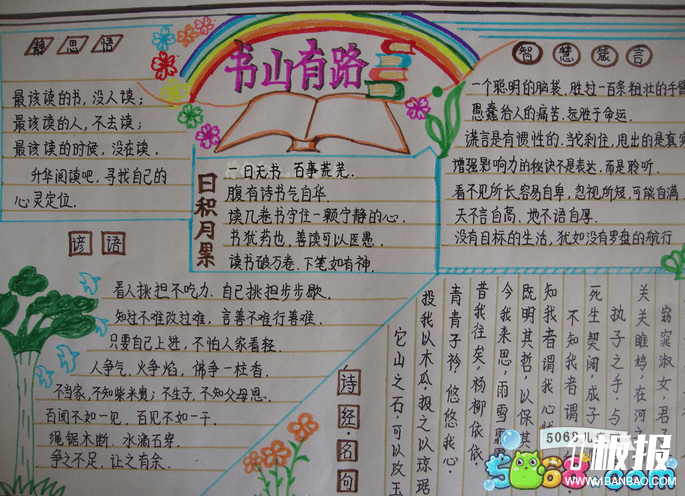 静思语
最该读的书，没人读；
最该读的人，不去读；
最该读的时候，没在读．
升华阅读吧，寻找自己的
心灵定位．
书山有路
智慧箴言
一个聪明的脑袋，胜过一百条粗壮的手臂
愚蠢给人的痛苦．远胜于命运．
谎言是有惯性的．当它刹住，甩出的是真实
增强影响力的秘诀不是表达，而是聆听．
看不见所长容易自卑，忽视所短，可能自满
天不言自高，地不语自厚．
没有目标的生活，犹如没有罗盘的航行
日积月果
一日无书 百事荒芜．
腹有诗书气自华．
读几卷书守住一颗宁静的心．
书犹药也，善读可以医愚．
读书破万卷．下笔如有神．
谚语
看人挑担不吃力．自己挑担步步歇．
知过不难改过难，言善不难行善难．
只要自己上进，不怕人家看轻．
人争气，火争焰，佛争一柱香．
不当家，不知柴米贵；不生子，不知父母恩．
百闻不如一见，百见不如一干．
绳锯木断．水滴石穿．
争之不足，让之有余．
诗经·名句
窈窕淑女，君子
关关雎鸠，在河之
执子之手，与
死生契阔，成子
不知我者，谓
知我者谓我心
既明其哲，以保其
今我来思，雨雪
昔我往矣，杨柳依依
青青子衿，悠悠我心．
投我以木瓜．报之以琼琚
它山之石，可以攻玉
5068儿
板报
5068.com
www.41BANBAO.COM